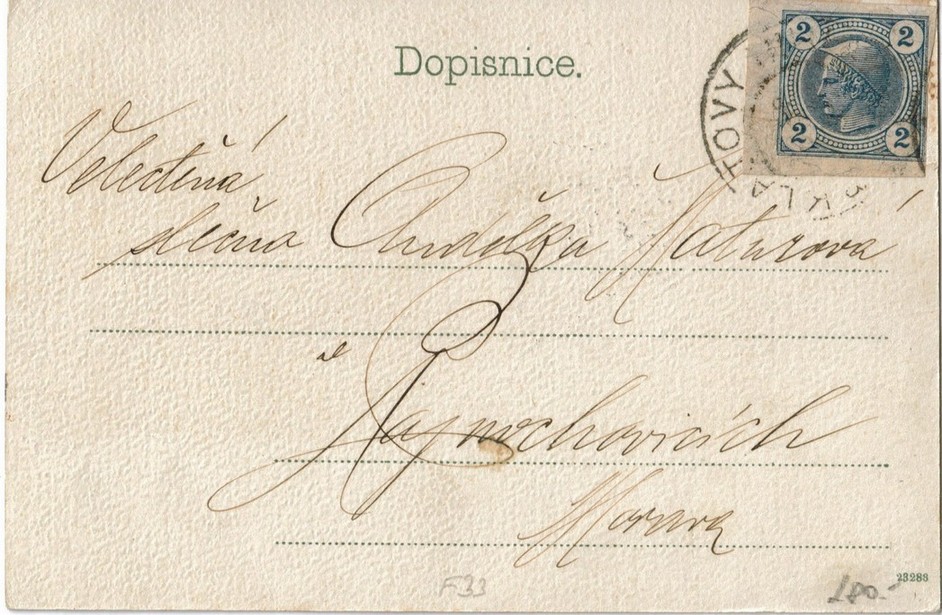 Dopisnice.
2 2
2 2
KLATOVY
Velectěná
slečna Andělka Maturová
v
Rajnochovicích
Morava
23288
F33
180.-